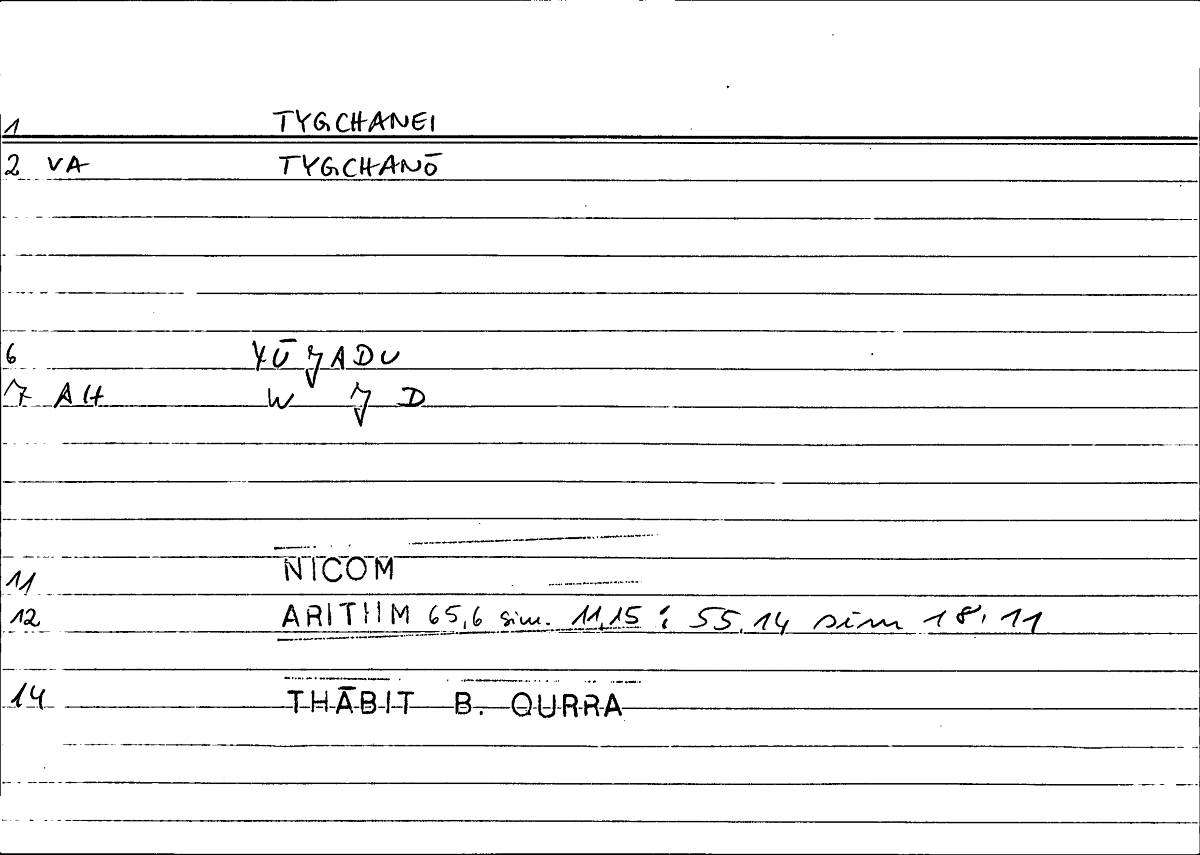 1 TYGCHANEI
2 VA TYGCHANŌ
6 YŪǦADU
7 AH W Ǧ D
11 NICOM
12 ARITHM 65,6 sim. 11,15 ; 55.14 sim 18,11
14 THĀBIT B. QURRA